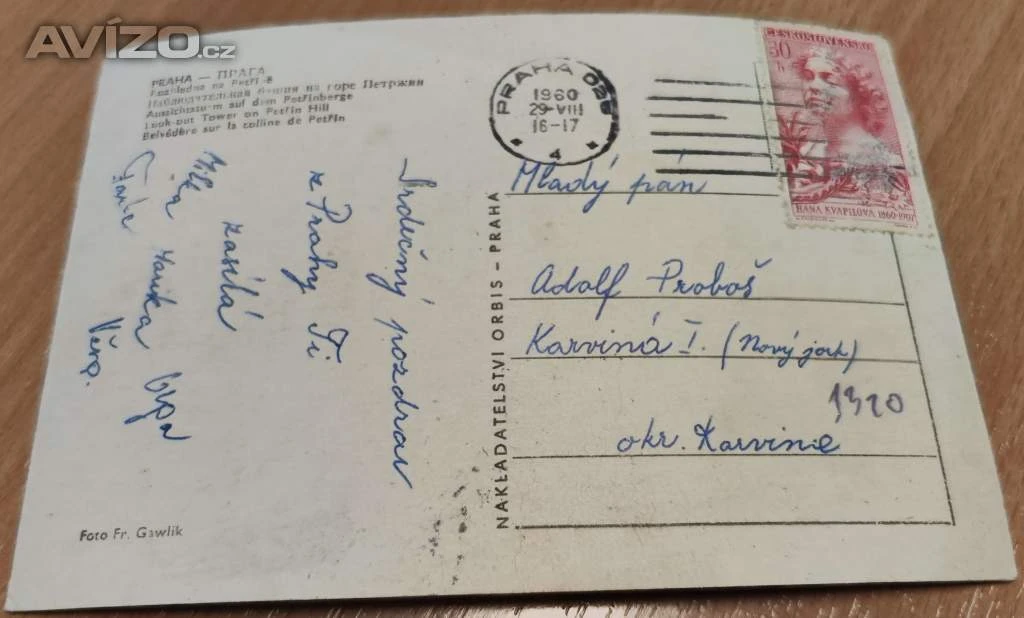 AVÍZO.cz
PRAHA — ПРАГА
Rozhledna na Petříně
Наблюдательная башня на горе Петржин
Aussichtsturm auf dem Petřínberge
Look-out Tower on Petřín Hill
Belvédère sur la colline de Petřín
PRAHA 025
1960
29-VIII
16-17
4
ČESKOSLOVENSKO
30
HANA KVAPILOVÁ 1860-1907
Srdečný pozdrav
z Prahy Ti
zasílá
Věra.
NAKLADATELSTVÍ ORBIS – PRAHA
Mladý pán
Adolf Proboš
Karviná I. (Nový jork)
1320
okr. Karvinné
Foto Fr. Gawlik